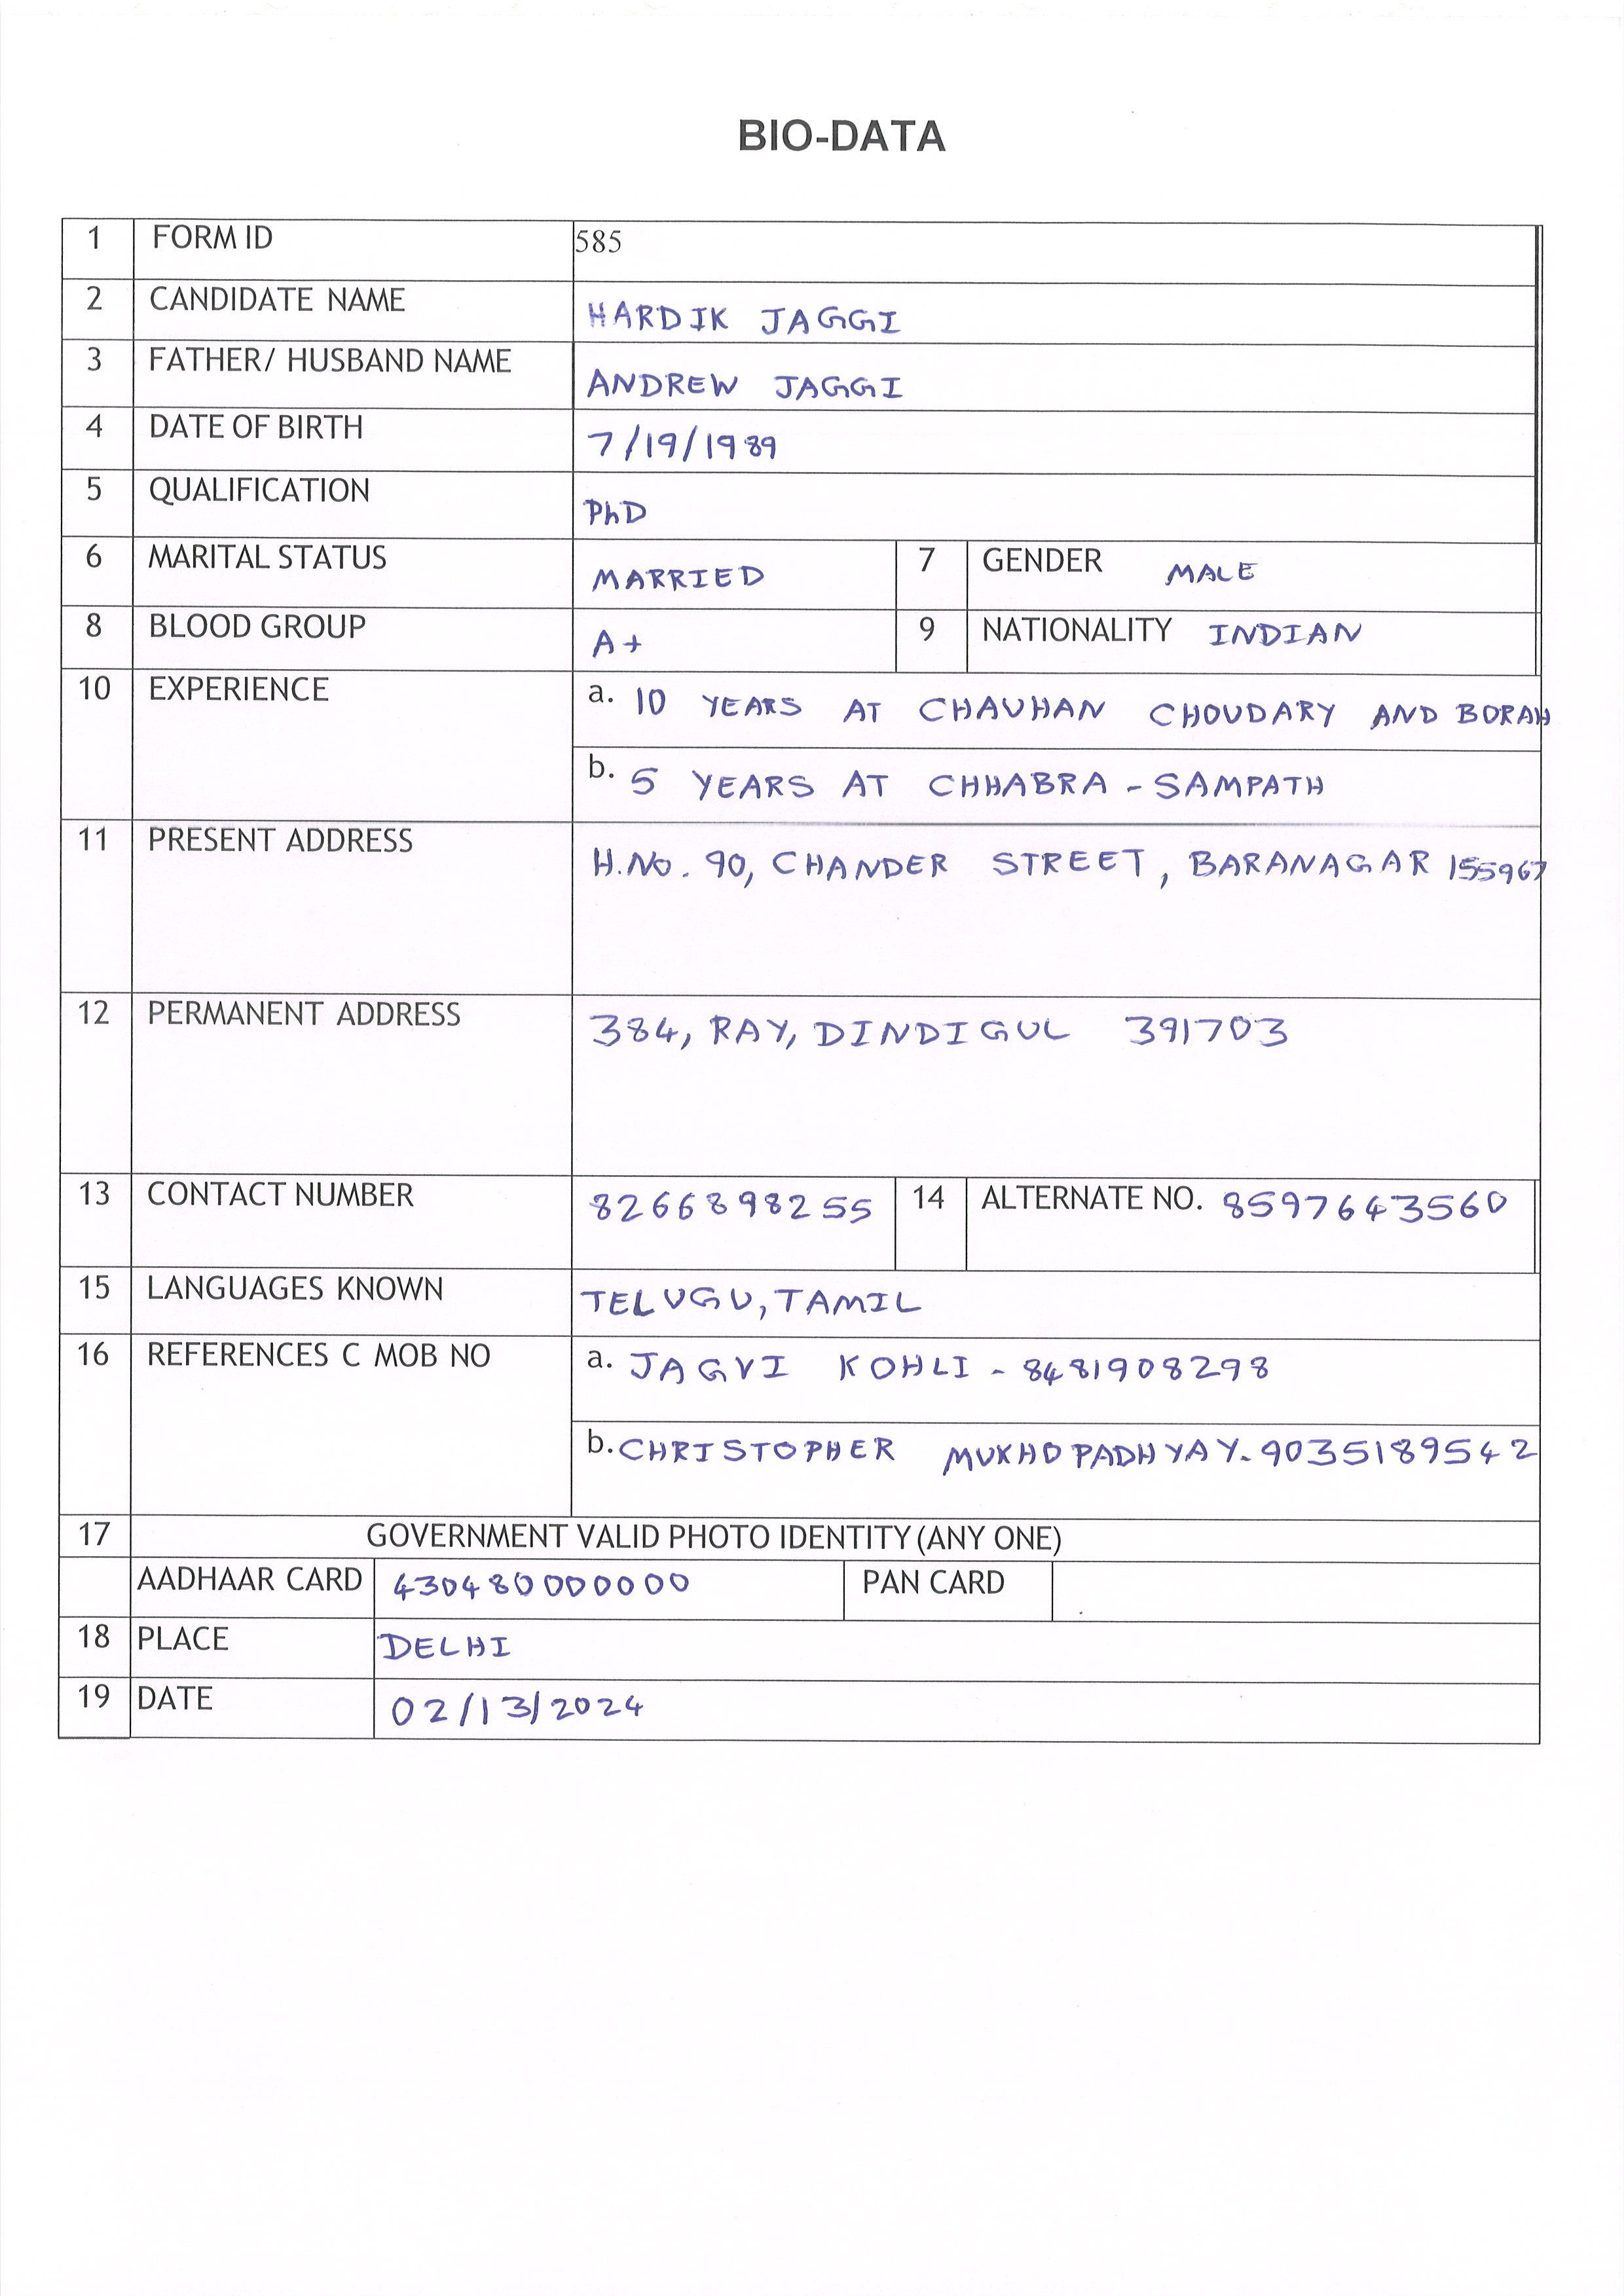 BIO-DATA
1 FORM ID 585
2 CANDIDATE NAME HARDIK JAGGI
3 FATHER/ HUSBAND NAME ANDREW JAGGI
4 DATE OF BIRTH 7/19/1989
5 QUALIFICATION PhD
6 MARITAL STATUS MARRIED 7 GENDER MALE
8 BLOOD GROUP A+ 9 NATIONALITY INDIAN
10 EXPERIENCE a. 10 YEARS AT CHAUHAN CHOUDARY AND BORAH
b. 5 YEARS AT CHHABRA - SAMPATH
11 PRESENT ADDRESS H.NO. 90, CHANDER STREET, BARANAGAR 155967
12 PERMANENT ADDRESS 384, RAY, DINDIGUL 391703
13 CONTACT NUMBER 8266898255 14 ALTERNATE NO. 8597643560
15 LANGUAGES KNOWN TELUGU, TAMIL
16 REFERENCES C MOB NO a. JAGVI KOHLI - 8481908298
b. CHRISTOPHER MUKHOPADHYAY - 9035189542
17 GOVERNMENT VALID PHOTO IDENTITY (ANY ONE)
AADHAAR CARD 430480000000 PAN CARD
18 PLACE DELHI
19 DATE 02/13/2024